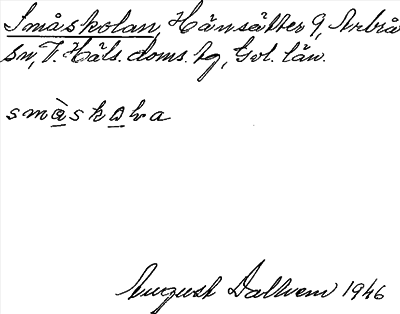 Småskolan, Hänsätter 9, Arbrå
sn, V. Häls. doms. tg, Gvl. län.
småskola
August Dalkvem 1946